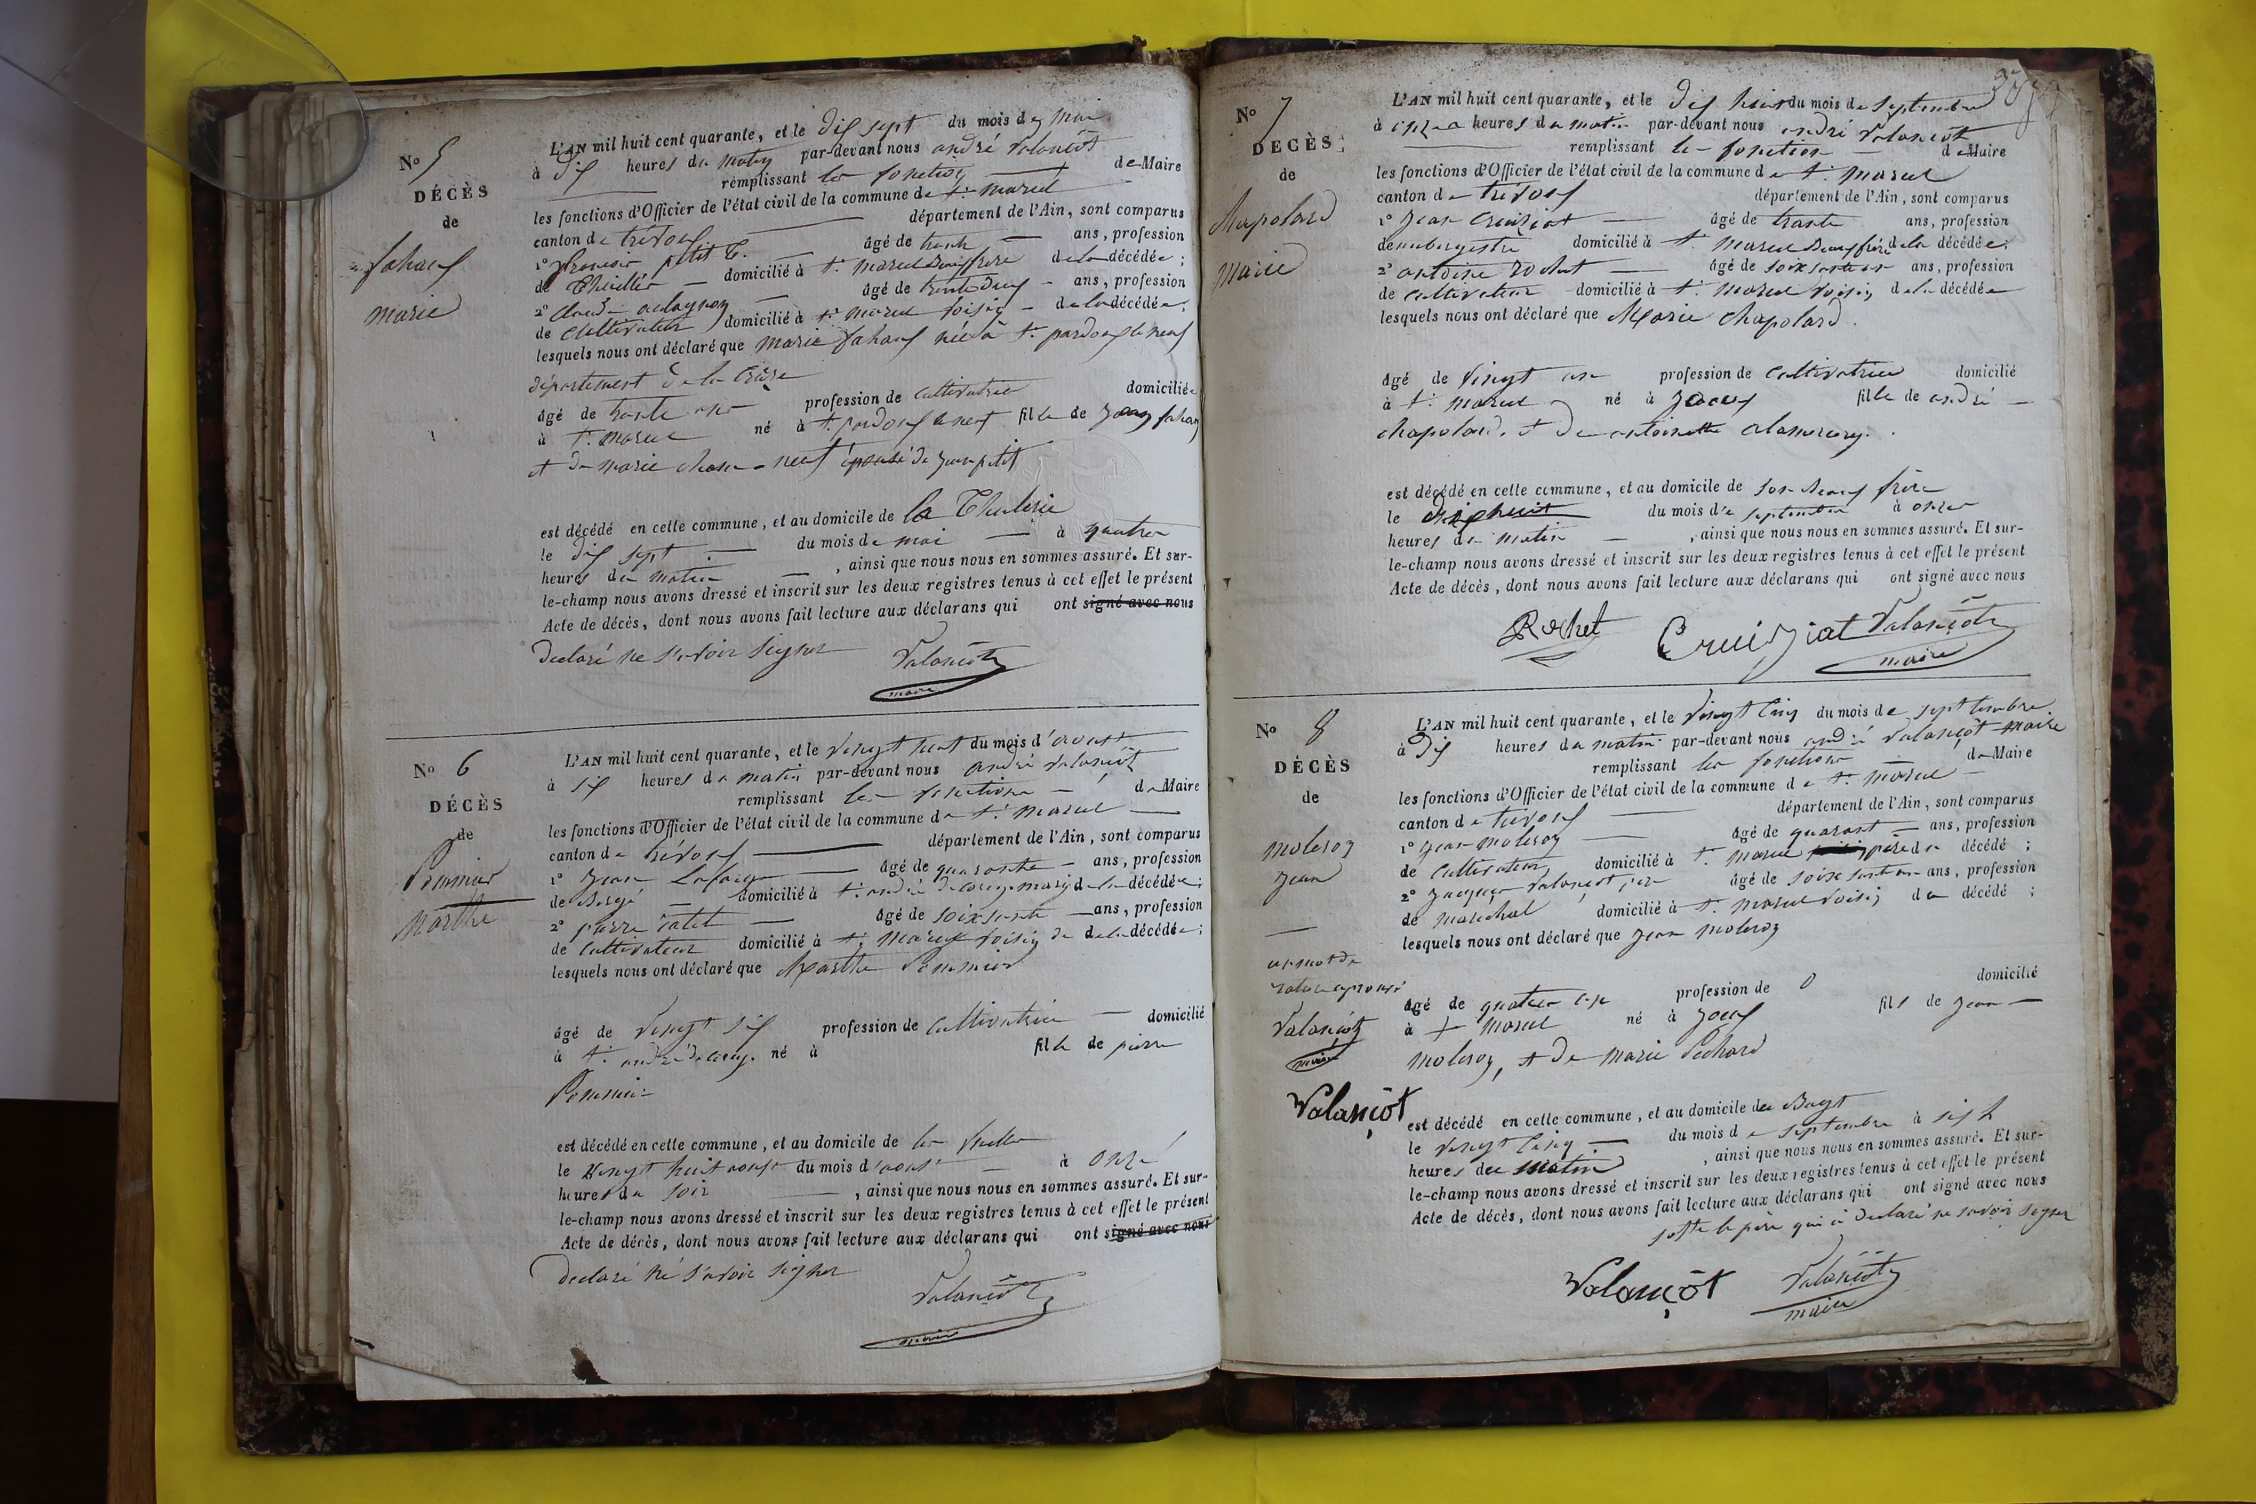 No 5
DÉCÈS
de
fahauf
marie
L'AN mil huit cent quarante, et le dix sept du mois de Mai
à dix heures du matin par-devant nous andré Valançot
remplissant les fonction de Maire
les fonctions d'Officier de l'état civil de la commune de St. marcel
canton de trévoux département de l'Ain, sont comparus
1° françois petit âgé de trente ans, profession
de domicilié à St. marcel Beaufrère de la décédée ;
2° claude âgé de trente deux ans, profession
de cultivateur domicilié à St. marcel voisin de la décédée ;
lesquels nous ont déclaré que marie née à St. pardoux le neuf
département de la Creuse
âgé de trente ans profession de cultivatrice domiciliée
à St. marcel né à St. pardoux le neuf fille de
et de marie chasse-neuf épouse de jean petit
est décédé en cette commune, et au domicile de la Thuilerie
le dix sept du mois de mai à quatre
heures du matin , ainsi que nous nous en sommes assuré. Et sur-
le-champ nous avons dressé et inscrit sur les deux registres tenus à cet effet le présent
Acte de décès, dont nous avons fait lecture aux déclarans qui ont signé avec nous
declaré ne savoir signer Valançot
maire
No 6
DÉCÈS
de
Pommier
Marthe
L'AN mil huit cent quarante, et le vingt huit du mois d'aoust
à six heures du matin par-devant nous andré Valançot
remplissant les fonctions de Maire
les fonctions d'Officier de l'état civil de la commune de St. marcel
canton de trévoux département de l'Ain, sont comparus
1° Jean âgé de quarante ans, profession
de domicilié à St. andré de corcy mari de la décédée ;
2° pierre âgé de soixante ans, profession
de cultivateur domicilié à St. Marcel voisin de de la décédée ;
lesquels nous ont déclaré que Marthe Pommier
âgé de vingt six profession de cultivatrice domicilié
à St. andré de corcy né à fille de pierre
Pommier
est décédé en cette commune, et au domicile de
le vingt huit aoust du mois d'aoust à onze
heures du soir , ainsi que nous nous en sommes assuré. Et sur-
le-champ nous avons dressé et inscrit sur les deux registres tenus à cet effet le présent
Acte de décès, dont nous avons fait lecture aux déclarans qui ont signé avec nous
declaré ne savoir signer
Valançot
maire
No 7
DÉCÈS
de
Chapolard
Marie
L'AN mil huit cent quarante, et le dix huit du mois de septembre
à onze heures du matin par-devant nous andré Valançot
remplissant les fonction de Maire
les fonctions d'Officier de l'état civil de la commune de St. marcel
canton de trévoux département de l'Ain, sont comparus
1° Jean Cruiziat âgé de trente ans, profession
de aubergiste domicilié à St. marcel Beaufrère de la décédée ;
2° antoine rochet âgé de ans, profession
de cultivateur domicilié à St. marcel voisin de la décédée
lesquels nous ont déclaré que Marie chapolard.
âgé de vingt ans profession de cultivatrice domicilié
à St. marcel né à fille de andré
chapolard, et de antoinette alamercery.
est décédé en cette commune, et au domicile de son beauf frère
le dix huit du mois de septembre à onze
heures du matin , ainsi que nous nous en sommes assuré. Et sur-
le-champ nous avons dressé et inscrit sur les deux registres tenus à cet effet le présent
Acte de décès, dont nous avons fait lecture aux déclarans qui ont signé avec nous
Rochet Cruiziat Valançot
maire
No 8
DÉCÈS
de
moleroz
jean
un mot de
rature aprouvé
Valançot
maire
Valançot
L'AN mil huit cent quarante, et le vingt cinq du mois de septembre
à dix heures du matin par-devant nous andré Valançot Maire
remplissant les fonctions de Maire
les fonctions d'Officier de l'état civil de la commune de St. marcel
canton de trévoux département de l'Ain, sont comparus
1° jean moleroz âgé de quarant ans, profession
de cultivateur domicilié à St. marcel père du décédé ;
2° jacques Valançot père âgé de ans, profession
de marechal domicilié à St. marcel voisin du décédé ;
lesquels nous ont déclaré que jean moleroz
âgé de quatre ans profession de 0 domicilié
à St marcel né à fils de jean
moleroz, et de marie Pechard
est décédé en cette commune, et au domicile du
le vingt cinq du mois de septembre à six h
heures du matin , ainsi que nous nous en sommes assuré. Et sur-
le-champ nous avons dressé et inscrit sur les deux registres tenus à cet effet le présent
Acte de décès, dont nous avons fait lecture aux déclarans qui ont signé avec nous
le père qui a declaré ne savoir signer
Valançot Valançot
maire